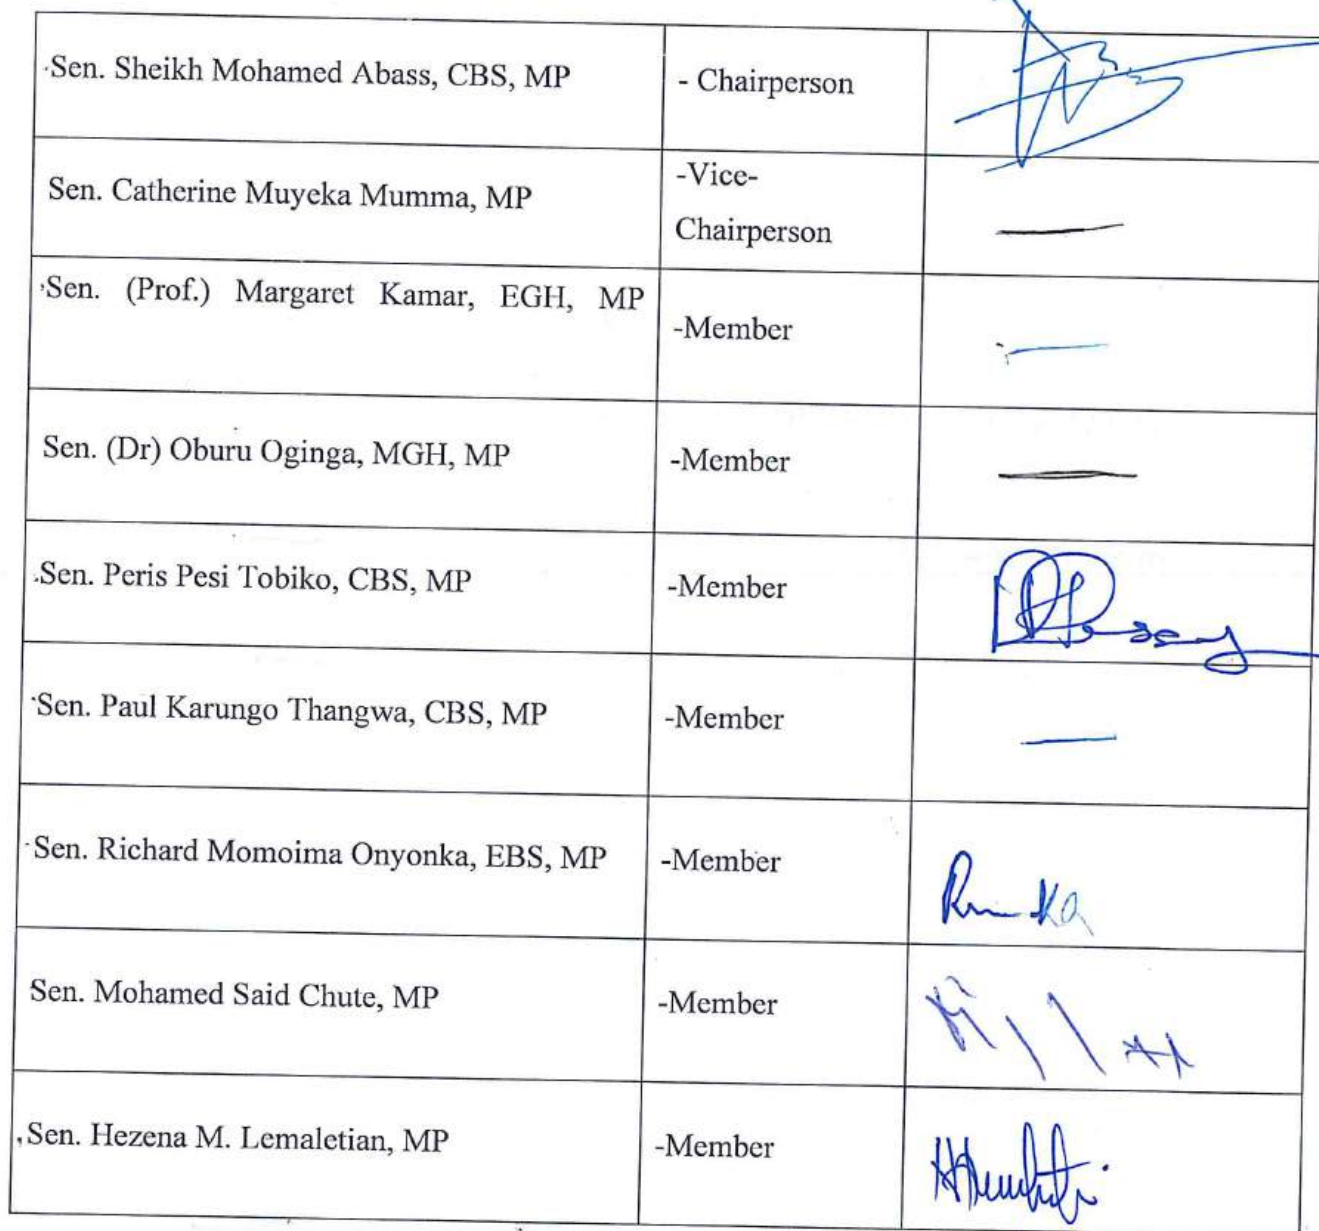 Sen. Sheikh Mohamed Abass, CBS, MP - Chairperson
Sen. Catherine Muyeka Mumma, MP -Vice-
Chairperson
Sen. (Prof.) Margaret Kamar, EGH, MP -Member
Sen. (Dr) Oburu Oginga, MGH, MP -Member
Sen. Peris Pesi Tobiko, CBS, MP -Member
Sen. Paul Karungo Thangwa, CBS, MP -Member
Sen. Richard Momoima Onyonka, EBS, MP -Member
Sen. Mohamed Said Chute, MP -Member
Sen. Hezena M. Lemaletian, MP -Member